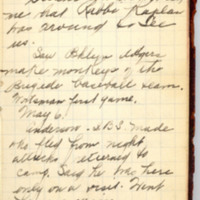 me that Rabbi Kaplan
was around to see
us.
Saw Bklyn Dodgers
make monkeys of the
Brigade baseball team.
first game.
May 6.
Anderson, S.B.S. Made
who fled from night
attacks returned to
camp. Said he was here
only on a visit. Went